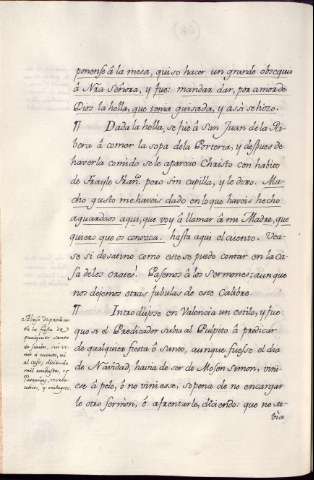 ponerse á la mesa, quiso hacer un grande obsequio
á Nra Señora, y fue: mandar dar, por amor de
Dios la holla, que tenia guisada, y assi se hizo.
¶ Dada la holla, se fue á San Juan de la Ri-
bera á comer la sopa de la Porteria, y despues de
haverla comido se le aparecio Christo con habito
de Frayle Fran.º pero sin capilla, y le dixo. Mu-
cho gusto me haveis dado en lo que haveis hecho
aguardaos aqui, que voy á llamar á mi Madre, que
quiero que os conozca. hasta aqui el cuento. Vea-
se si desatino como este se puede contar en la Ca-
sa de los Orates! Pasemos á los Sermones: aunque
nos dejemos otras fabulas de este Calibre.
¶ Introdujose en Valencia un estilo, y fue
que si el Predicador subia al Pulpito á predicar
de qualquier fiesta ó Santo, aunque fuesse el dia
de Navidad, havia de ser de Mosen Simon, vini-
ese á pelo, ó no viniesse, so pena de no encargar
le otro sermon, ó afrentarle, diciendo: que no se-
bia
de la fiesta de
qualquier santo